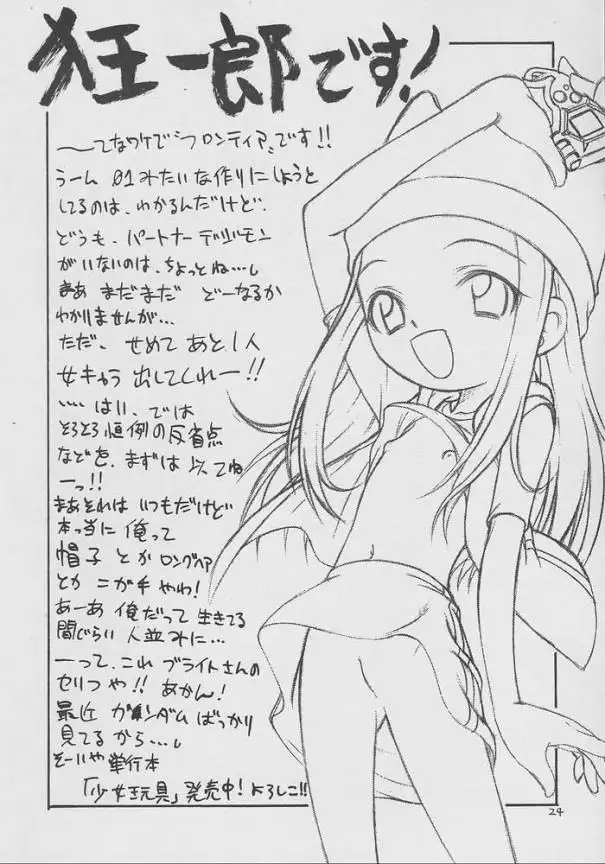 狂一郎です!
〜てなワケで“フロンティア”です!!
うーん 01みたいな作りにしようと
してるのは、わかるんだけど、
どうも、パートナーデジモン
がいないのは、ちょっとね…し
まあ まだまだ どーなるか
わかりませんが…
ただ、せめて あと、1人
女キャラ 出してくれー!!
…… はい、では
そろそろ恒例の反省点
などを、まずは 似てね
ーっ!!
まあそれは いつもだけど
本当に 俺って
帽子 とか ロングヘア
とか ニガ手 やわ!
あーあ 俺だって 生きてる
間ぐらい 人並みに…
ーって、これ ブライトさんの
セリフや!! あかん!
最近 ガンダム ばっかり
見てる から…し
そーいや 単行本
「少女玩具」発売中! よろしこ!!
24